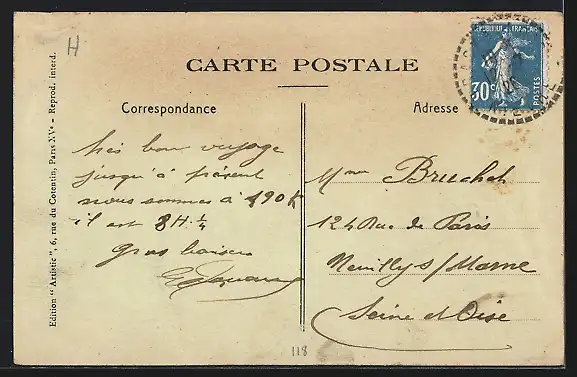 H
CARTE POSTALE
Correspondance
Adresse
RÉPUBLIQUE FRANÇAISE
30c
POSTES
Edition " Artistic ", 6, rue du Cotentin, Paris-XVe - Reprod. interd.
très bon voyage
jusqu'à présent
nous sommes à 190 K
il est 8 H. 1/4
gros baisers
Mme Bruchet
124 Rue de Paris
Neuilly s/ Marne
Seine et Oise
118